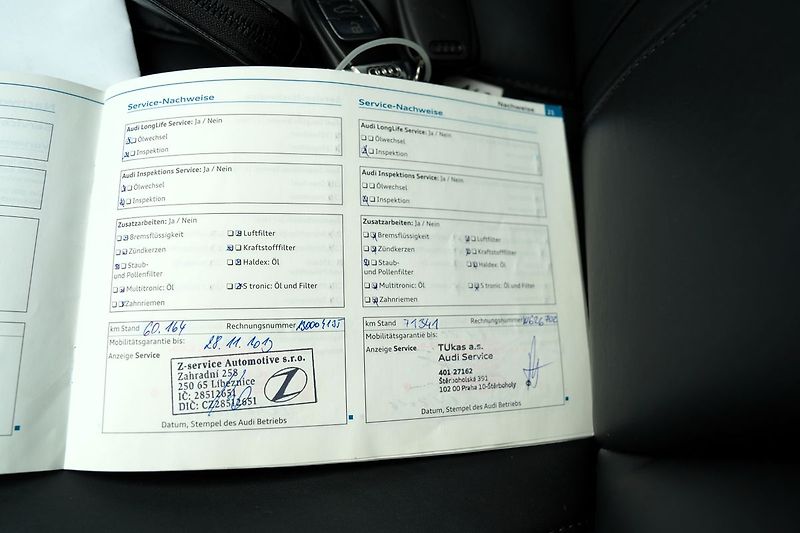 Nachweise 23
Service-Nachweise
Audi LongLife Service: Ja / Nein
Ölwechsel
Inspektion
Audi Inspektions Service: Ja / Nein
Ölwechsel
Inspektion
Zusatzarbeiten: Ja / Nein
Bremsflüssigkeit Luftfilter
Zündkerzen Kraftstofffilter
Staub- Haldex: Öl
und Pollenfilter
Multitronic: Öl S tronic: Öl und Filter
Zahnriemen
km Stand 60.164 Rechnungsnummer
Mobilitätsgarantie bis: 28.11.2013
Anzeige Service
Z-service Automotive s.r.o.
Zahradní 258
250 65 Líbeznice
IČ: 28512651
DIČ: CZ28512651
Datum, Stempel des Audi Betriebs
Service-Nachweise
Audi LongLife Service: Ja / Nein
Ölwechsel
Inspektion
Audi Inspektions Service: Ja / Nein
Ölwechsel
Inspektion
Zusatzarbeiten: Ja / Nein
Bremsflüssigkeit Luftfilter
Zündkerzen Kraftstofffilter
Staub- Haldex: Öl
und Pollenfilter
Multitronic: Öl S tronic: Öl und Filter
Zahnriemen
km Stand 71341 Rechnungsnummer
Mobilitätsgarantie bis:
Anzeige Service
TUkas a.s.
Audi Service
401-27162
Štěrboholská 391
102 00 Praha 10-Štěrboholy
Datum, Stempel des Audi Betriebs